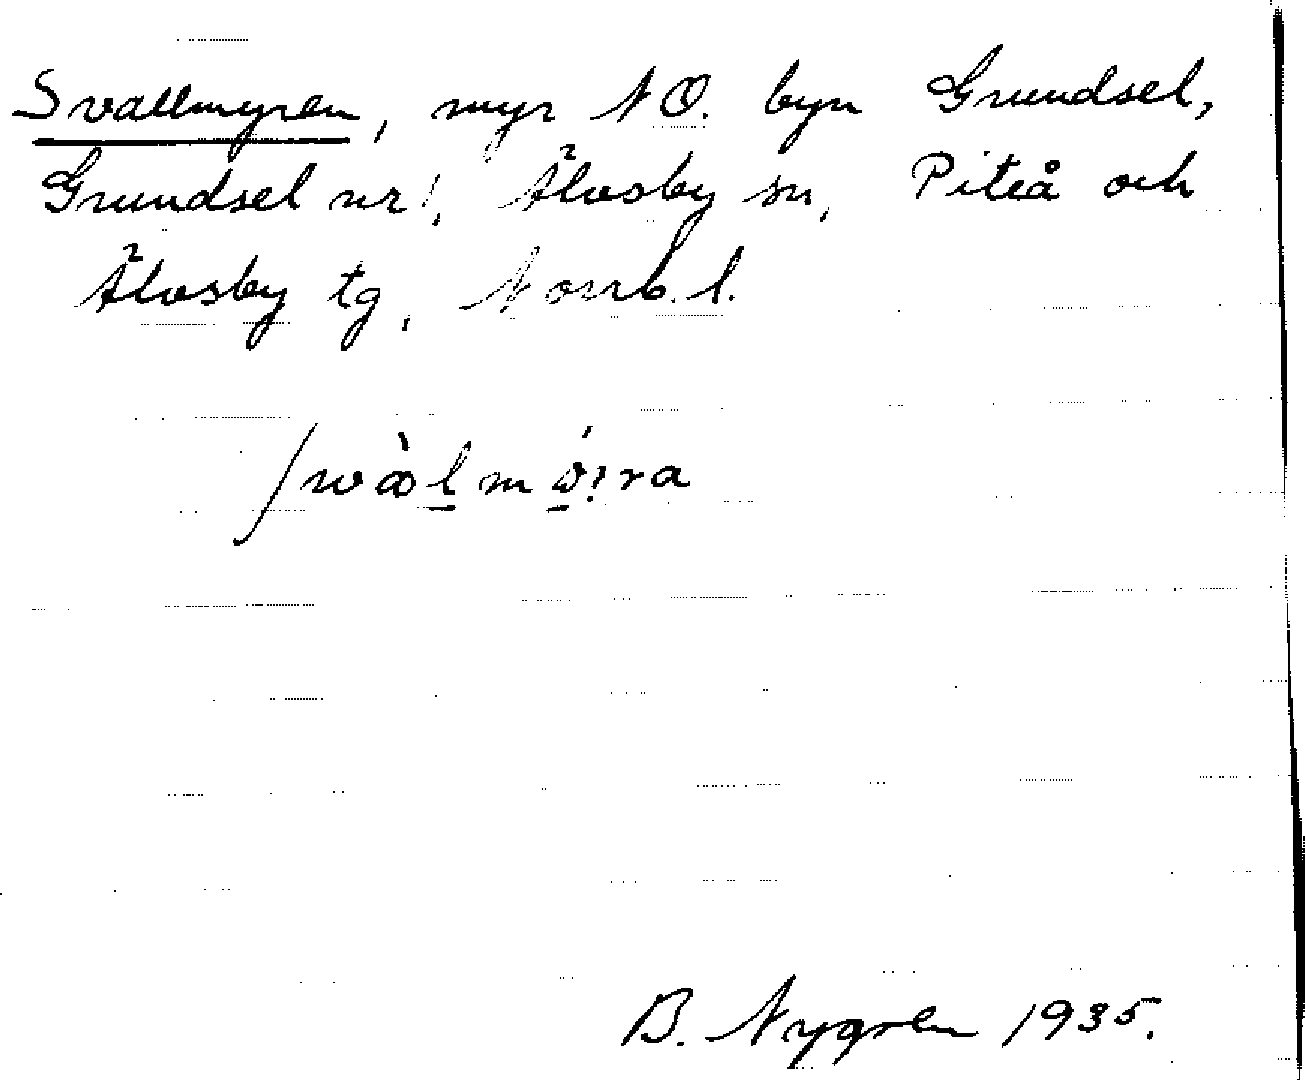 Svallmyren, myr NO. byn Grundsel,
Grundsel nr 1, Älvsby sn, Piteå och
Älvsby tg, Norrb. l.
B. Nygren 1935.